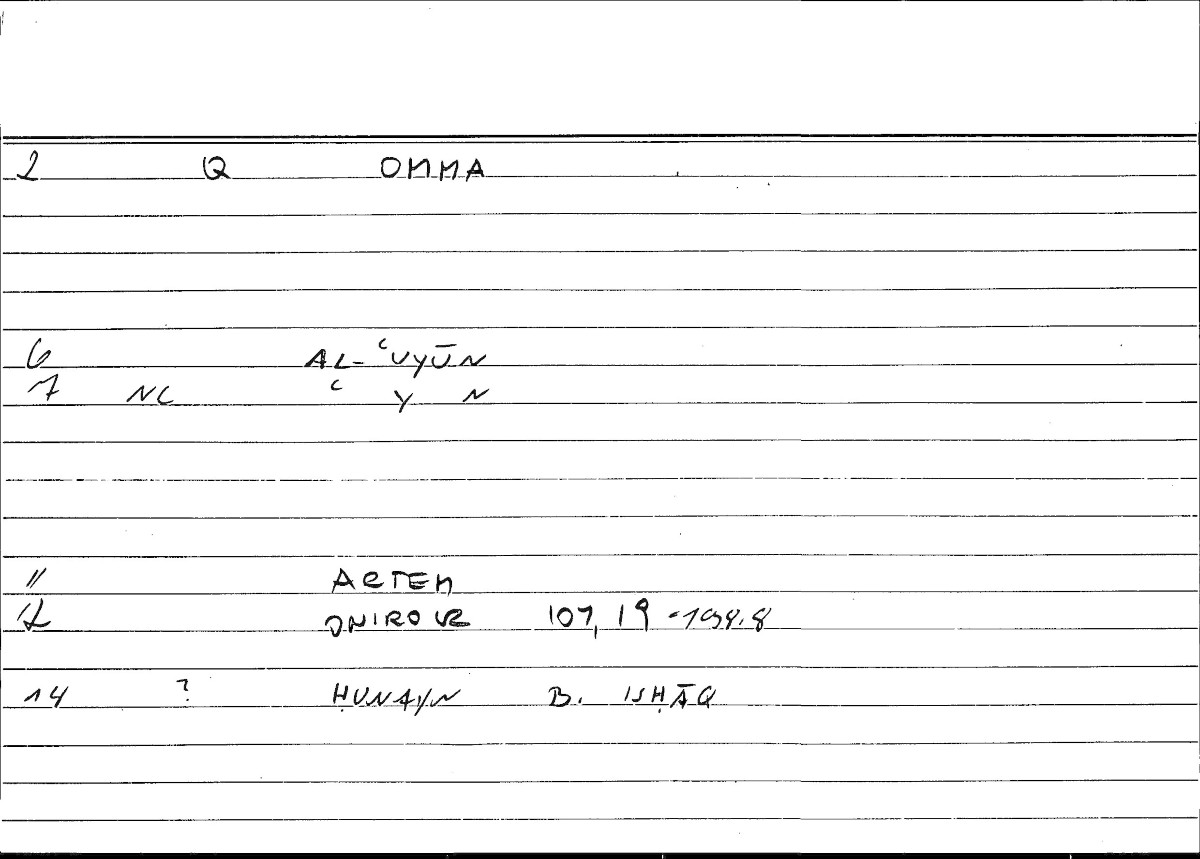 2 Q OMMA
6 AL-ʿUYŪN
7 NC ʿ Y N
11 ARTEM
12 ONIROCR 107,19 -108.8
14 ? ḤUNAYN B. ISḤĀQ